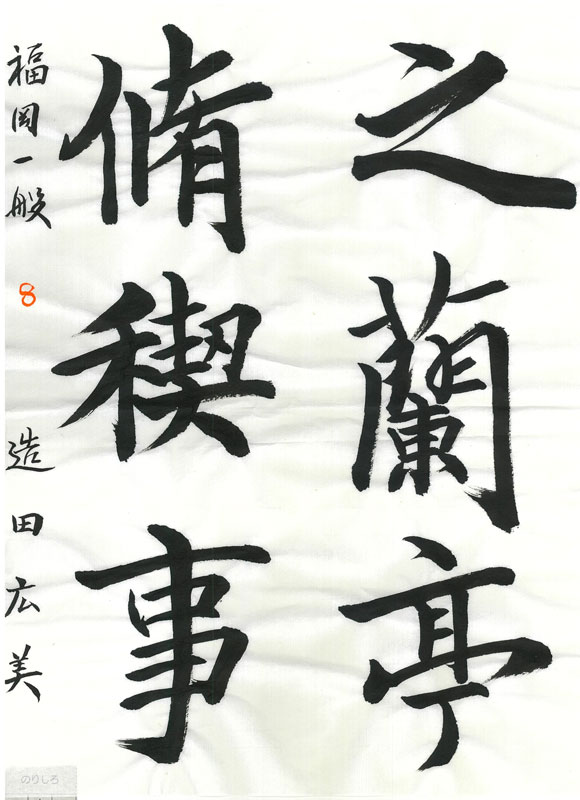 之蘭亭
脩稧事
福岡一般 8 造田広美
のりしろ